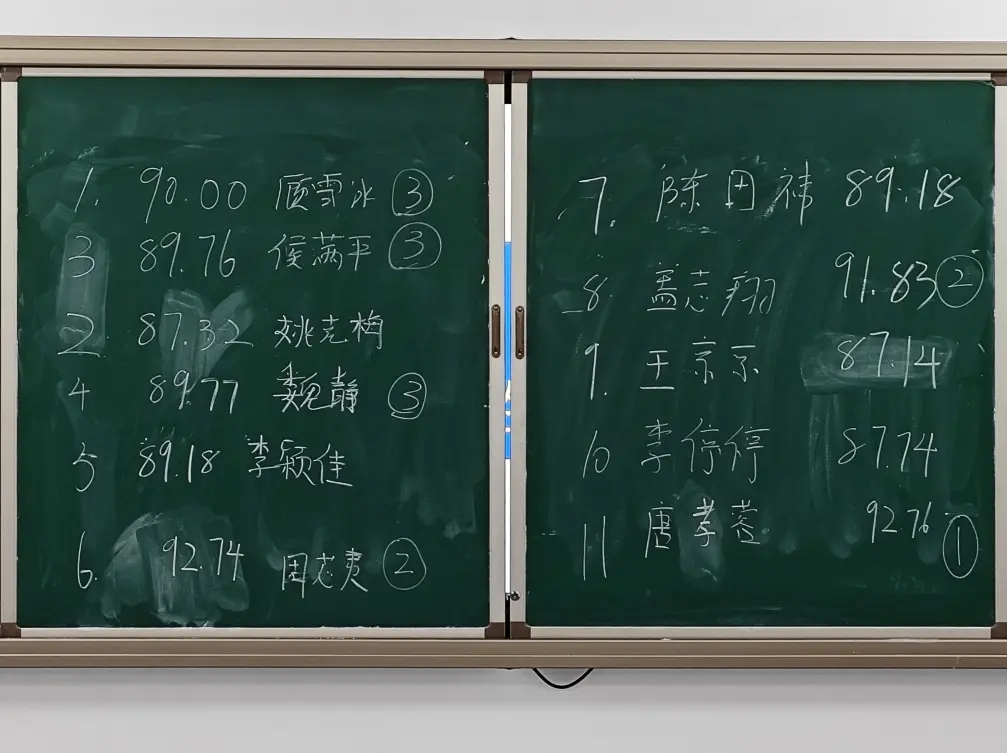 1. 90.00 顾雪冰 ③
3 89.76 侯满平 ③
2. 87.32 姚克梅
4 89.77 魏静 ③
5 89.18 李颖佳
6. 92.74 周志 ②
7. 陈田 89.18
8 盖志翔 91.83 ②
9. 王京京 87.14
10 李停停 87.74
11 唐孝蓉 92.76 ①